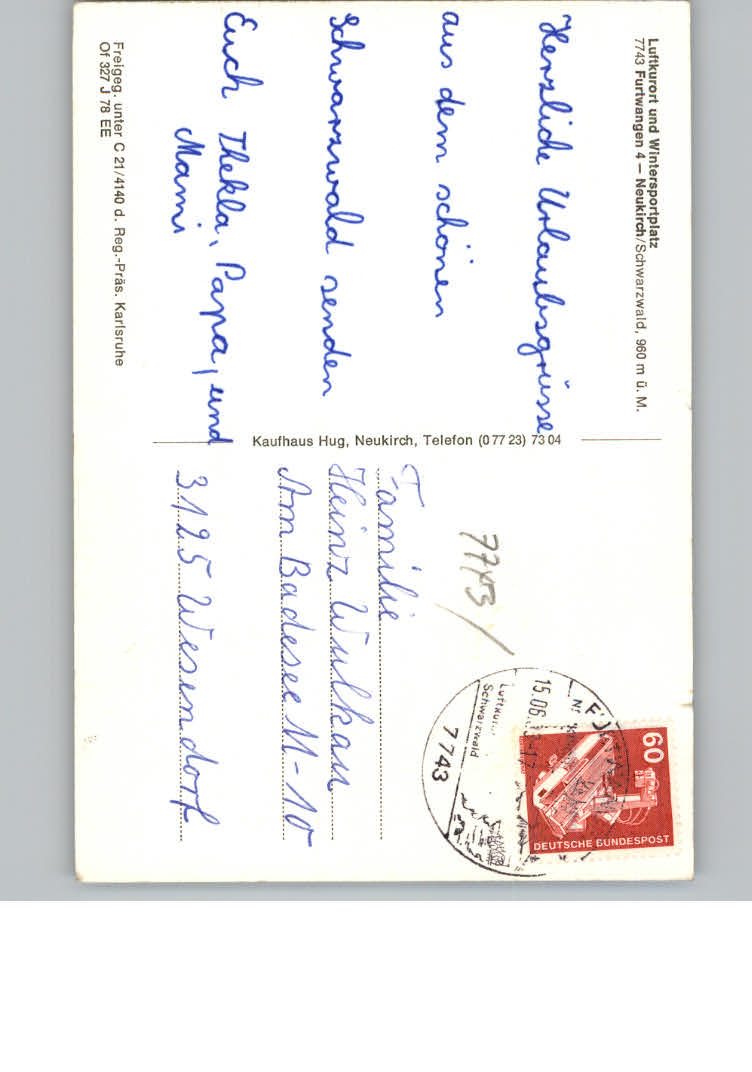 Luftkurort und Wintersportplatz
7743 Furtwangen 4 — Neukirch/Schwarzwald, 960 m ü. M.
Herzliche Urlaubsgrüsse
aus dem schönen
Schwarzwald senden
Euch Thekla, Papa, und
Mami
Freigeg. unter C 21/4140 d. Reg.-Präs. Karlsruhe
Of 327 J 78 EE
Kaufhaus Hug, Neukirch, Telefon (0 77 23) 73 04
60
DEUTSCHE BUNDESPOST
15.06.
Schwarzwald
7743
Familie
Heinz Wulkau
Am Badesee 11-10
3125 Wesendorf